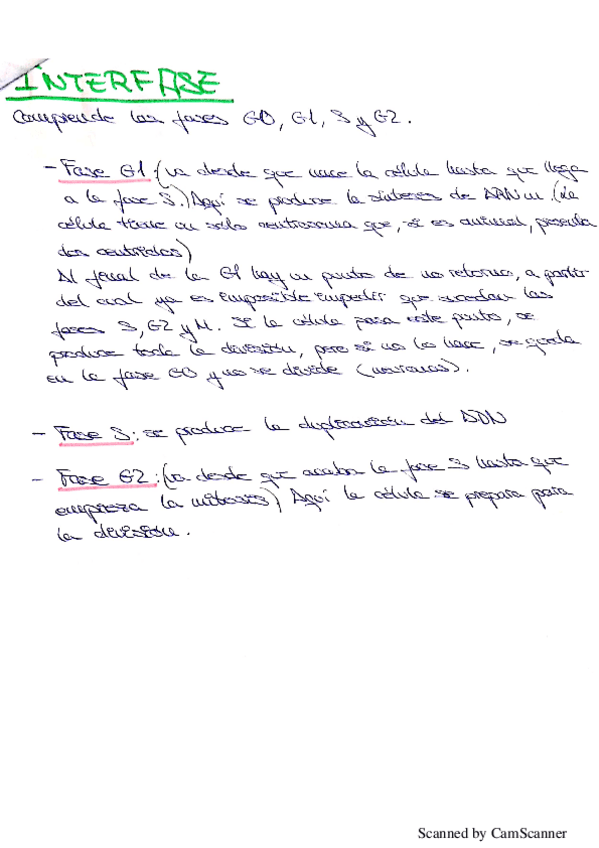 INTERFASE
Comprende las fases G0, G1, S y G2.
- Fase G1 (va desde que nace la célula hasta que llega
a la fase S.) Aquí se produce la síntesis de ARNm. (la
célula tiene un solo centrosoma que, si es animal, presenta
dos centriolos)
Al final de la G1 hay un punto de no retorno, a partir
del cual ya es imposible impedir que sucedan las
fases S, G2 y M. Si la célula pasa este punto, se
produce toda la división, pero si no lo hace, se queda
en la fase G0 y no se divide (neuronas).
- Fase S: se produce la duplicación del ADN
- Fase G2: (va desde que acaba la fase S hasta que
empieza la mitosis) Aquí la célula se prepara para
la división.
Scanned by CamScanner